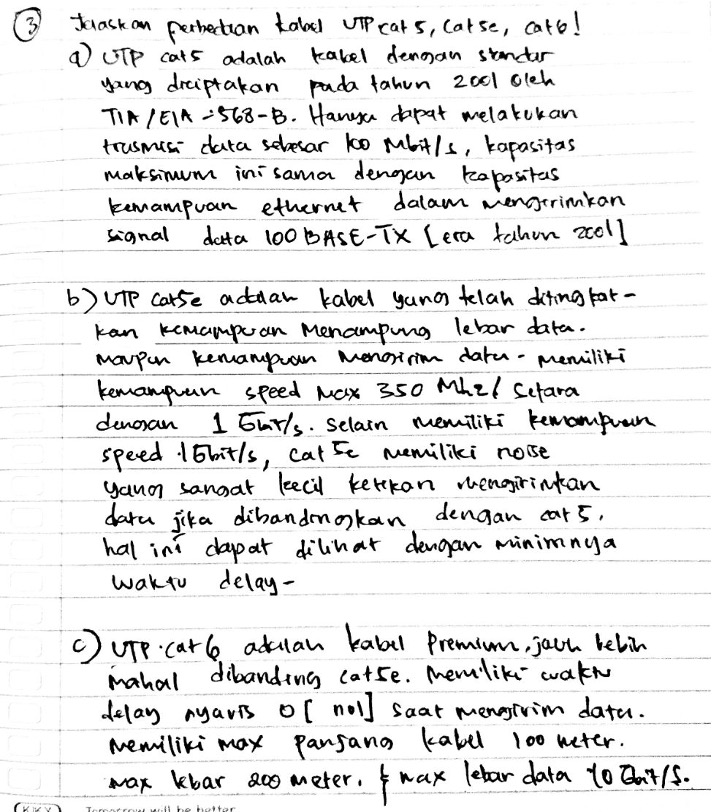 3 Jelaskan perbedaan kabel UTP cat 5, Cat 5e, cat 6!
a) UTP cat5 adalah kabel dengan standar
yang diciptakan pada tahun 2001 oleh
TIA/EIA-568-B. Hanya dapat melakukan
trasmisi data sebesar 100 Mbit/s, kapasitas
maksimum ini sama dengan kapasitas
kemampuan ethernet dalam mengirimkan
signal data 100 BASE-TX [era tahun 2001]
b) UTP Cat5e adalah kabel yang telah ditingkat-
kan kemampuan menampung lebar data.
maupun kemampuan mengirim data. memiliki
kemampuan speed max 350 Mhz/ setara
dengan 1 Gbit/s. Selain memiliki kemampuan
speed 1Gbit/s, cat 5e memiliki noise
yang sangat kecil ketikan mengirimkan
data jika dibandingkan dengan cat 5.
hal ini dapat dilihat dengan minimnya
waktu delay-
c) UTP cat 6 adalah kabel Premium, jauh lebih
mahal dibanding cat5e. Memiliki waktu
delay nyaris 0 [nol] saat mengirim data.
Memiliki max panjang kabel 100 meter.
max lebar 200 meter. & max lebar data 10 Gbit/s.
KKY Tomorrow will be better